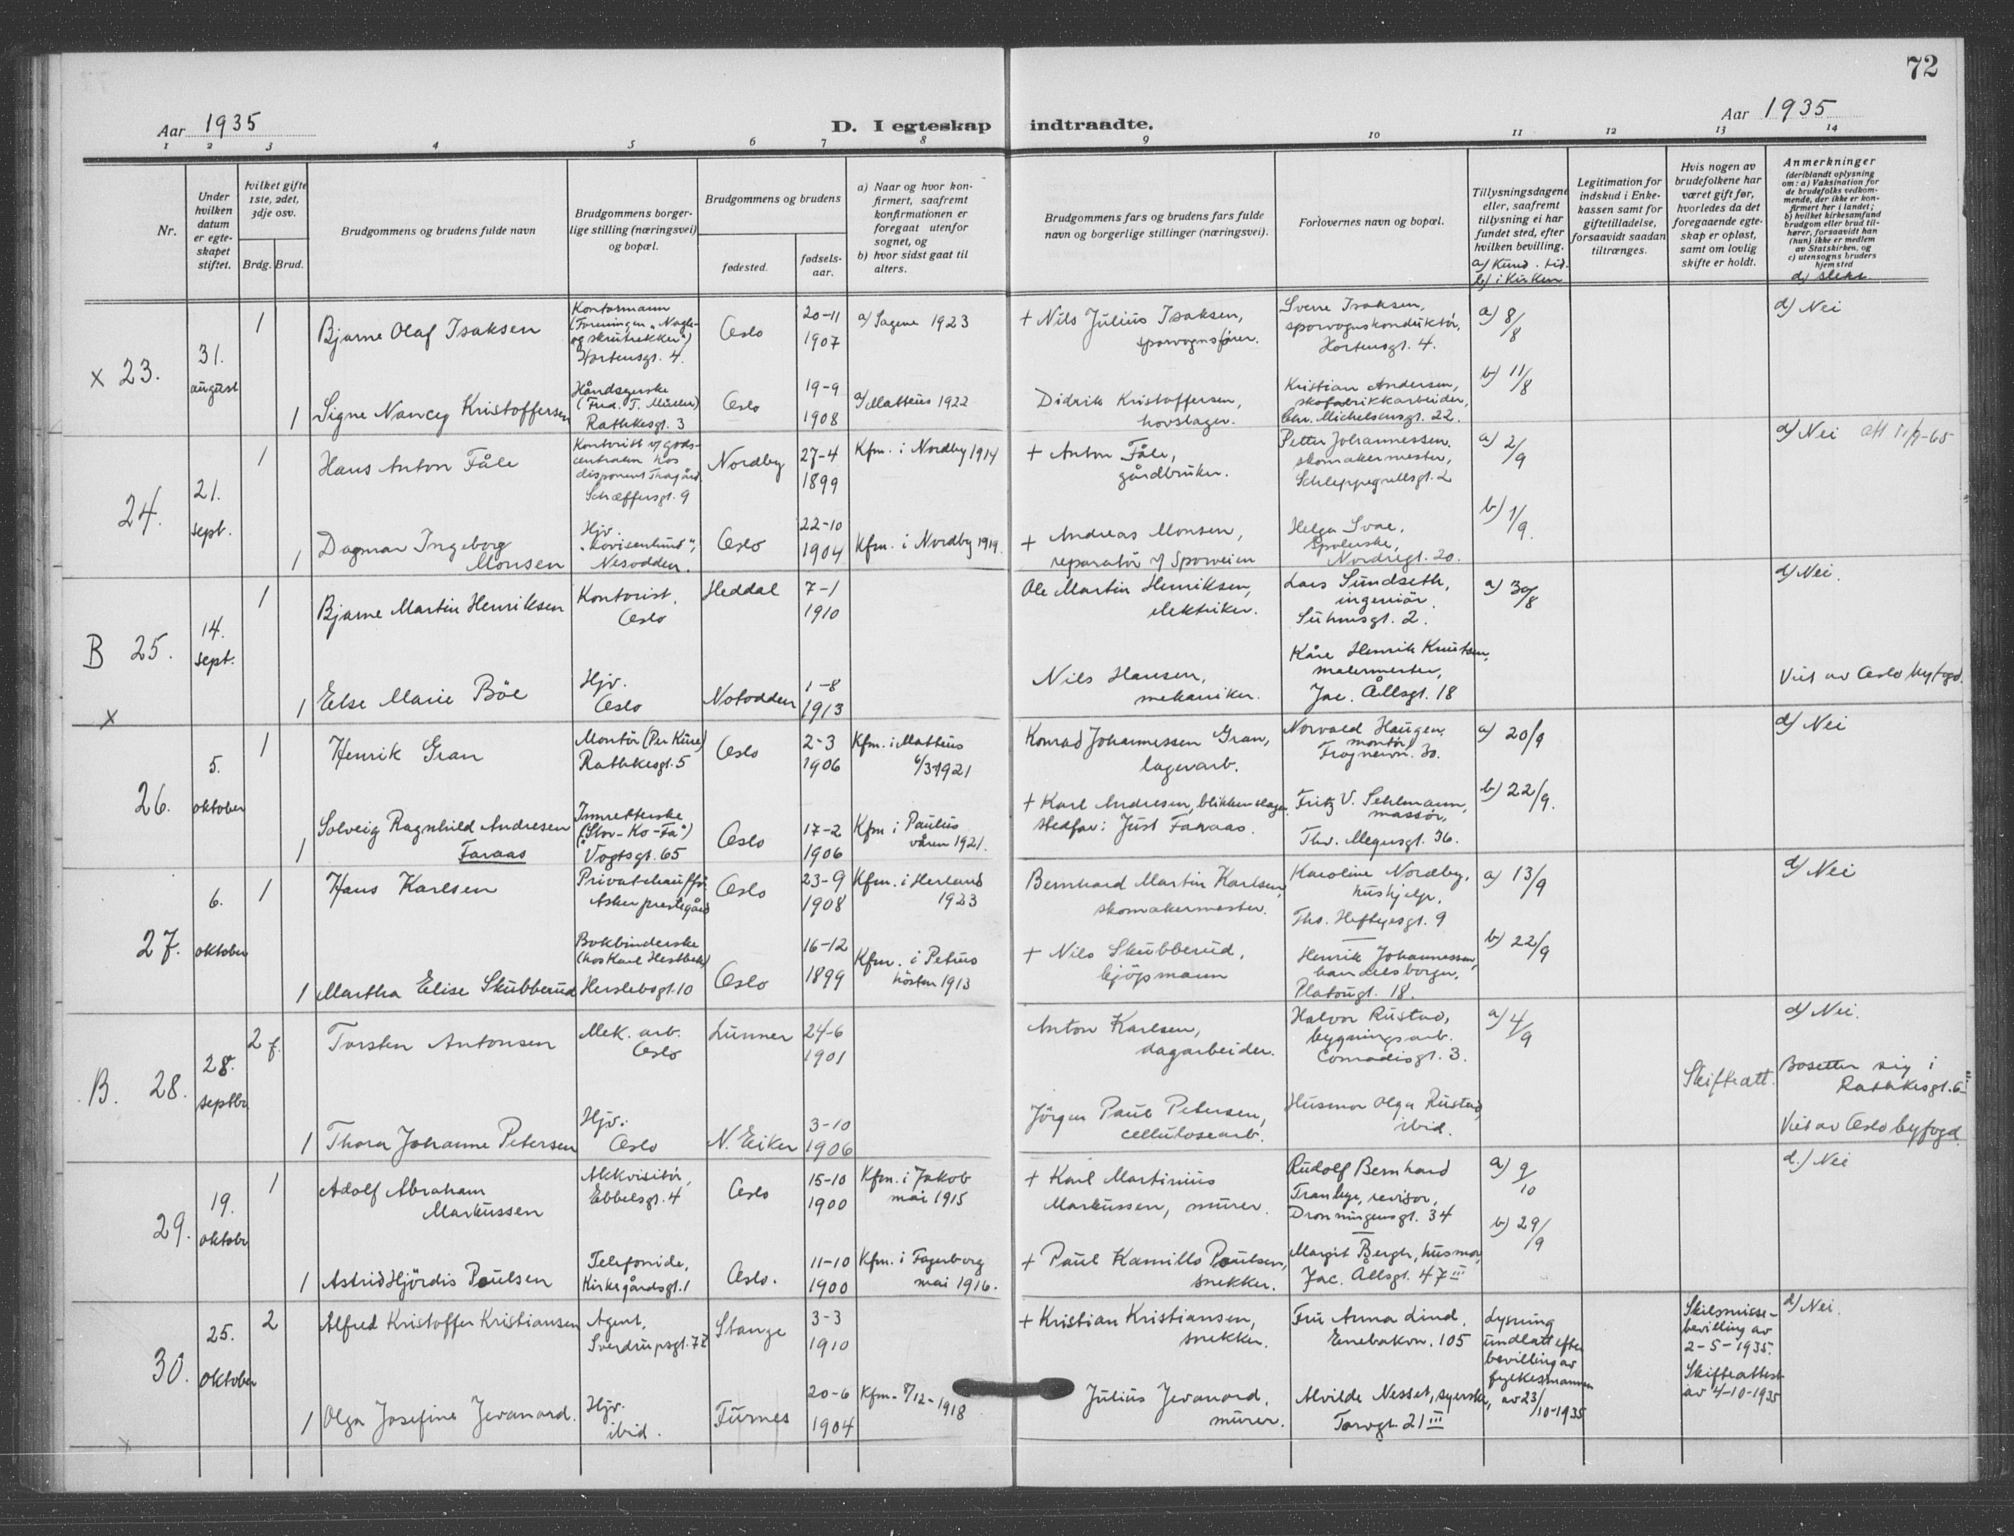 72
Aar 1935
D. I egteskap indtraadte.
Aar 1935
1 2 3 4 5 6 7 8 9 10 11 12 13 14
Nr.
Under
hvilken
datum
er egte-
skapet
stiftet.
hvilket gifte
1ste, 2det,
3dje osv.
Brdg. Brud.
Brudgommens og brudens fulde navn
Brudgommens borger-
lige stilling (næringsvei)
og bopæl.
Brudgommens og brudens
fødested.
fødsels-
aar.
a) Naar og hvor kon-
firmert, saafremt
konfirmationen er
foregaat utenfor
sognet, og
b) hvor sidst gaat til
alters.
Brudgommens fars og brudens fars fulde
navn og borgerlige stillinger (næringsvei).
Forlovernes navn og bopæl.
Tillysningsdagene
eller, saafremt
tillysning ei har
fundet sted, efter
hvilken bevilling.
a) Kund. tid.
b) i Kirken
Legitimation for
indskud i Enke-
kassen samt for
giftetilladelse,
forsaavidt saadan
tiltrænges.
Hvis nogen av
brudefolkene har
været gift før,
hvorledes da det
foregaaende egte-
skap er opløst,
samt om lovlig
skifte er holdt.
Anmerkninger
(deriblandt oplysning
om: a) Vaksination for
de brudefolks vedkom-
mende, der ikke er kon-
firmert her i landet;
b) hvilket kirkesamfund
brudgom eller brud til-
hører, forsaavidt han
(hun) ikke er medlem
av Statskirken, og
c) utensogns bruders
hjemsted
d) slekt
x 23.
31.
august
1
Bjarne Olaf Isaksen
Kontormann
(Foreningen "Nagle-
og skrutrekker")
Hortensgt. 4.
Oslo
20-11
1907
a) Sagene 1923
+ Nils Julius Isaksen,
sporvognsfører.
Sverre Isaksen,
sporvognskonduktør,
Hortensgt. 4.
a) 8/8
d) Nei
1
Signe Nancy Kristoffersen
Håndsyerske
(Fred. T. Müller)
Rathkesgt. 3
Oslo
19-9
1908
a) Matteus 1922
Didrik Kristoffersen,
hovslager.
Kristian Andersen,
skofabrikkarbeider,
Chr. Michelsensgt. 22.
b) 11/8
24.
21.
sept.
1
Hans Anton Fåle
Kontorist v/ gods-
centralen hos
disponent Thogård
Schæffersgt. 9
Nordby
27-4
1899
Kfm. i Nordby 1914
+ Anton Fåle,
gårdbruker.
Petter Johannessen.
skomakermester,
Schleppegrellsgt. 2
a) 2/9
d) Nei att 11/9-65
1
Dagmar Ingeborg
Monsen
Hjv.
"Lovisenlund",
Nesodden.
Oslo
22-10
1904
Kfm. i Nordby 1919.
+ Andreas Monsen,
reparatør v/ Sporveien
Helga Svae,
Spolerske,
Nordregt. 20.
b) 1/9.
B 25.
x
14.
sept.
1
Bjarne Martin Henriksen
Kontorist,
Oslo
Heddal
7-1
1910
Ole Martin Henriksen,
elektriker.
Lars Sundseth,
ingeniør.
Suhmsgt. 2.
a) 30/8
d) Nei.
1
Else Marie Böe
Hjv.
Oslo
Notodden
1-8
1913
Nils Hansen,
mekaniker.
Kåre Henrik Knutsen,
malermester,
Jac. Ållsgt. 18
Viet av Oslo byfogd.
26.
5.
oktober
1
Henrik Gran
Montør (Per Kure)
Rathkesgt. 5
Oslo
2-3
1906
Kfm. i Matteus
6/3-1921
Konrad Johannessen Gran,
lagerarb.
Norvald Haugen,
montør,
Frognervn. 30.
a) 20/9
d) Nei
1
Solveig Ragnhild Andresen
Faraas
Innretterske
("Stor-Ko-Fa")
Vogtsgt. 65
Oslo
17-2
1906
Kfm i Paulus
våren 1921.
+ Karl Andresen, blikkenslager
stedfar: Just Faraas.
Fritz V. Sehlmann,
massør,
Thv. Meyersgt. 36.
b) 22/9.
27.
6.
oktober
1
Hans Karlsen
Privatchauffør
Asker prestegård
Oslo
23-9
1908
Kfm. i Herland
1923
Bernhard Martin Karlsen,
skomakermester.
Karoline Nordby,
hushjelp,
Ths. Heftyesgt. 9
a) 13/9
d) Nei
1
Martha Elise Skubberud
Bokbinderske
(hos Karl Hestbek)
Herslebsgt. 10
Oslo
16-12
1899
Kfm. i Petrus
høsten 1913
+ Nils Skubberud,
kjøpmann
Henrik Johannessen,
handelsborger,
Platougt. 18.
b) 22/9
B. 28.
28.
septbr
2 f.
Torsten Antonsen
Mek. arb.
Oslo
Lunner
24-6
1901
Anton Karlsen,
dagarbeider.
Halvor Rustad,
bygningsarb.
Conradisgt. 3.
a) 4/9
Skifteatt.
d) Nei.
Bosetter sig i
Rathkesgt. 6 II
1
Thora Johanne Petersen
Hjv.
Oslo
N. Eiker
3-10
1906
Jörgen Paul Petersen,
cellulosearb.
Husmor Olga Rustad,
ibid.
Viet av Oslo byfogd.
29.
19.
oktobr
1
Adolf Abraham
Markussen
Akkvisitør,
Ebbelsgt. 4
Oslo
15-10
1900
Kfm. i Jakob
mai 1915
+ Karl Martinius
Markussen, murer.
Rudolf Bernhard
Tranbye, revisor,
Dronningensgt. 34
a) 9/10
d.) Nei
1
Astrid Hjördis Poulsen
Telefonide,
Kirkegårdsgt. 1
Oslo.
11-10
1900
Kfm. i Fagerborg
mai 1916.
+ Paul Kamillo Poulsen,
snekker.
Margit Bergh, husmor,
Jac. Ållsgt. 47 III
b) 29/9
30.
x
25.
oktober
2
Alfred Kristoffer Kristiansen
Agent,
Sverdrupsgt. 7 II
Stange
3-3
1910
+ Kristian Kristiansen,
snekker.
Fru Anna Lind,
Enebakvn. 105
Lysning
undlatt efter
bevilling av
fylkesmannen
av 23/10-1935
Skilsmisse-
bevilling av
2-5-1935.
Skifteattest
av 4-10-1935
d) Nei.
1
Olga Josefine Jevanord.
Hjv.
ibid.
Furnes
20-6
1904
Kfm. 8/12-1918
Julius Jevanord.
murer.
Alvilde Nesset, syerske,
Torvgt. 21 III